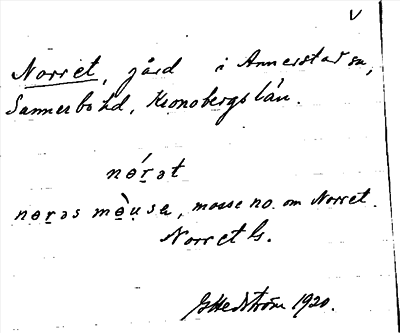 V
Norret, gård i Annerstad sn,
Sunnerbo hd, Kronobergs län.
nǿr̲ət
nɵr̲əs mɵ̀u̯sa, mosse no. om Norret.
Norret G.
G Hedström 1920.